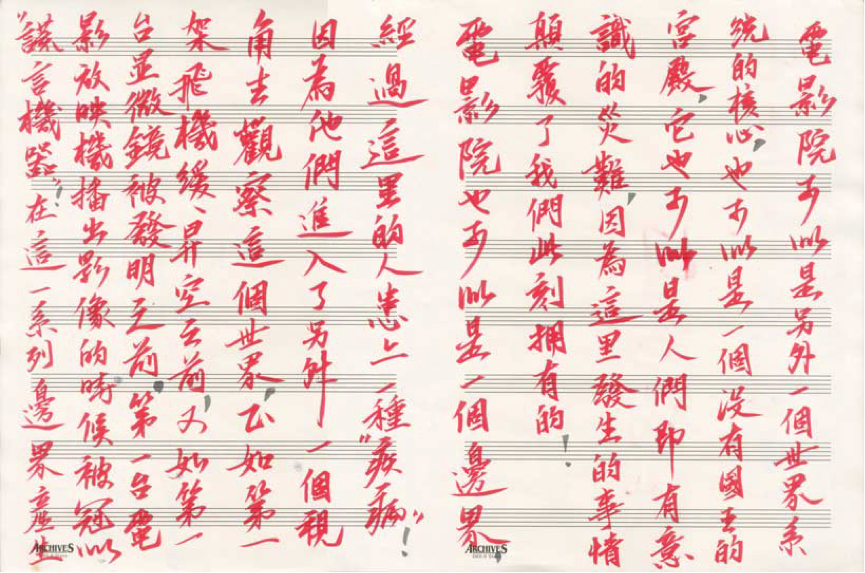 電影院可以是另外一個世界系
统的核心，也可以是一個没有國王的
宮殿，它也可以是人們即有意
識的災難，因為這里發生的事情
顛覆了我們此刻擁有的！
電影院也可以是一個邊界，
經過這里的人患上一種“疾病”！
因為他們進入了另外一個視
角去觀察這個世界，正如第一
架飛機缓、昇空之前，又如第一
台显微鏡被發明之前，第一台電
影放映機播出影像的時候被冠以
“謊言機器”！在這一系列邊界産生
ARCHIVES
ARCHIVES